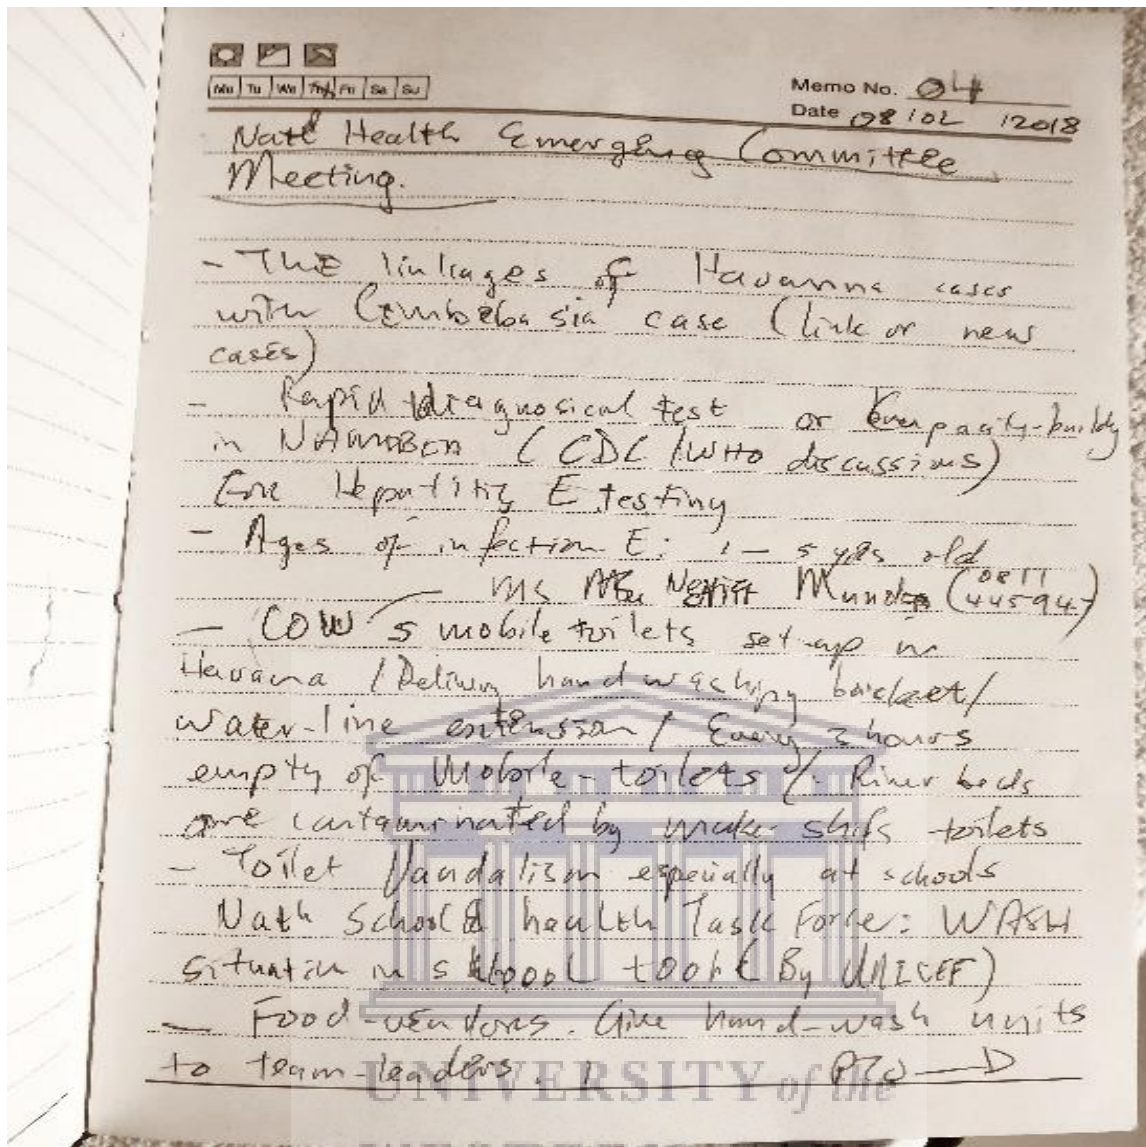 Mo Tu We Th Fr Sa Su
Memo No. 04
Date 08 / 02 / 2018
Natl Health Emergency Committee
Meeting.
- The linkages of Havanna cases
with Cimbebasia case (link or new
cases)
- Rapid diagnosical test or Capacity-buildg
in NAMIBIA (CDC/WHO discussions)
For Hepatitis E testing
- Ages of infection E: 1 - 5 yrs old
Ms (0811
445947)
- COW 5 mobile toilets set-up in
Havana / Delivery hand washing bucket/
water-line extension / Every 2 hours
empty of Mobile-toilets / River beds
are contaminated by make-shifs toilets
- Toilet Vandalism especially at schools
Nath School health Task Force: WASH
situation in school (By UNICEF)
- Food-vendors. Give hand-wash units
to team-leaders.
UNIVERSITY of the